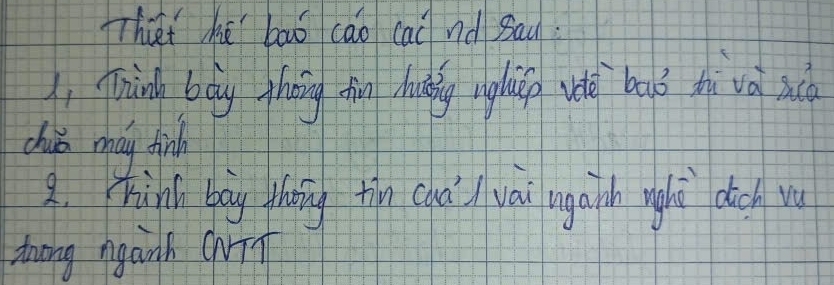 Thiết kế báo cáo các nd sau:
1, Trình bày thông tin hướng nghiệp về bảo trì và sửa
chữa máy tính
2. Trình bày thông tin của 1 vài ngành nghề dịch vụ
trong ngành CNTT